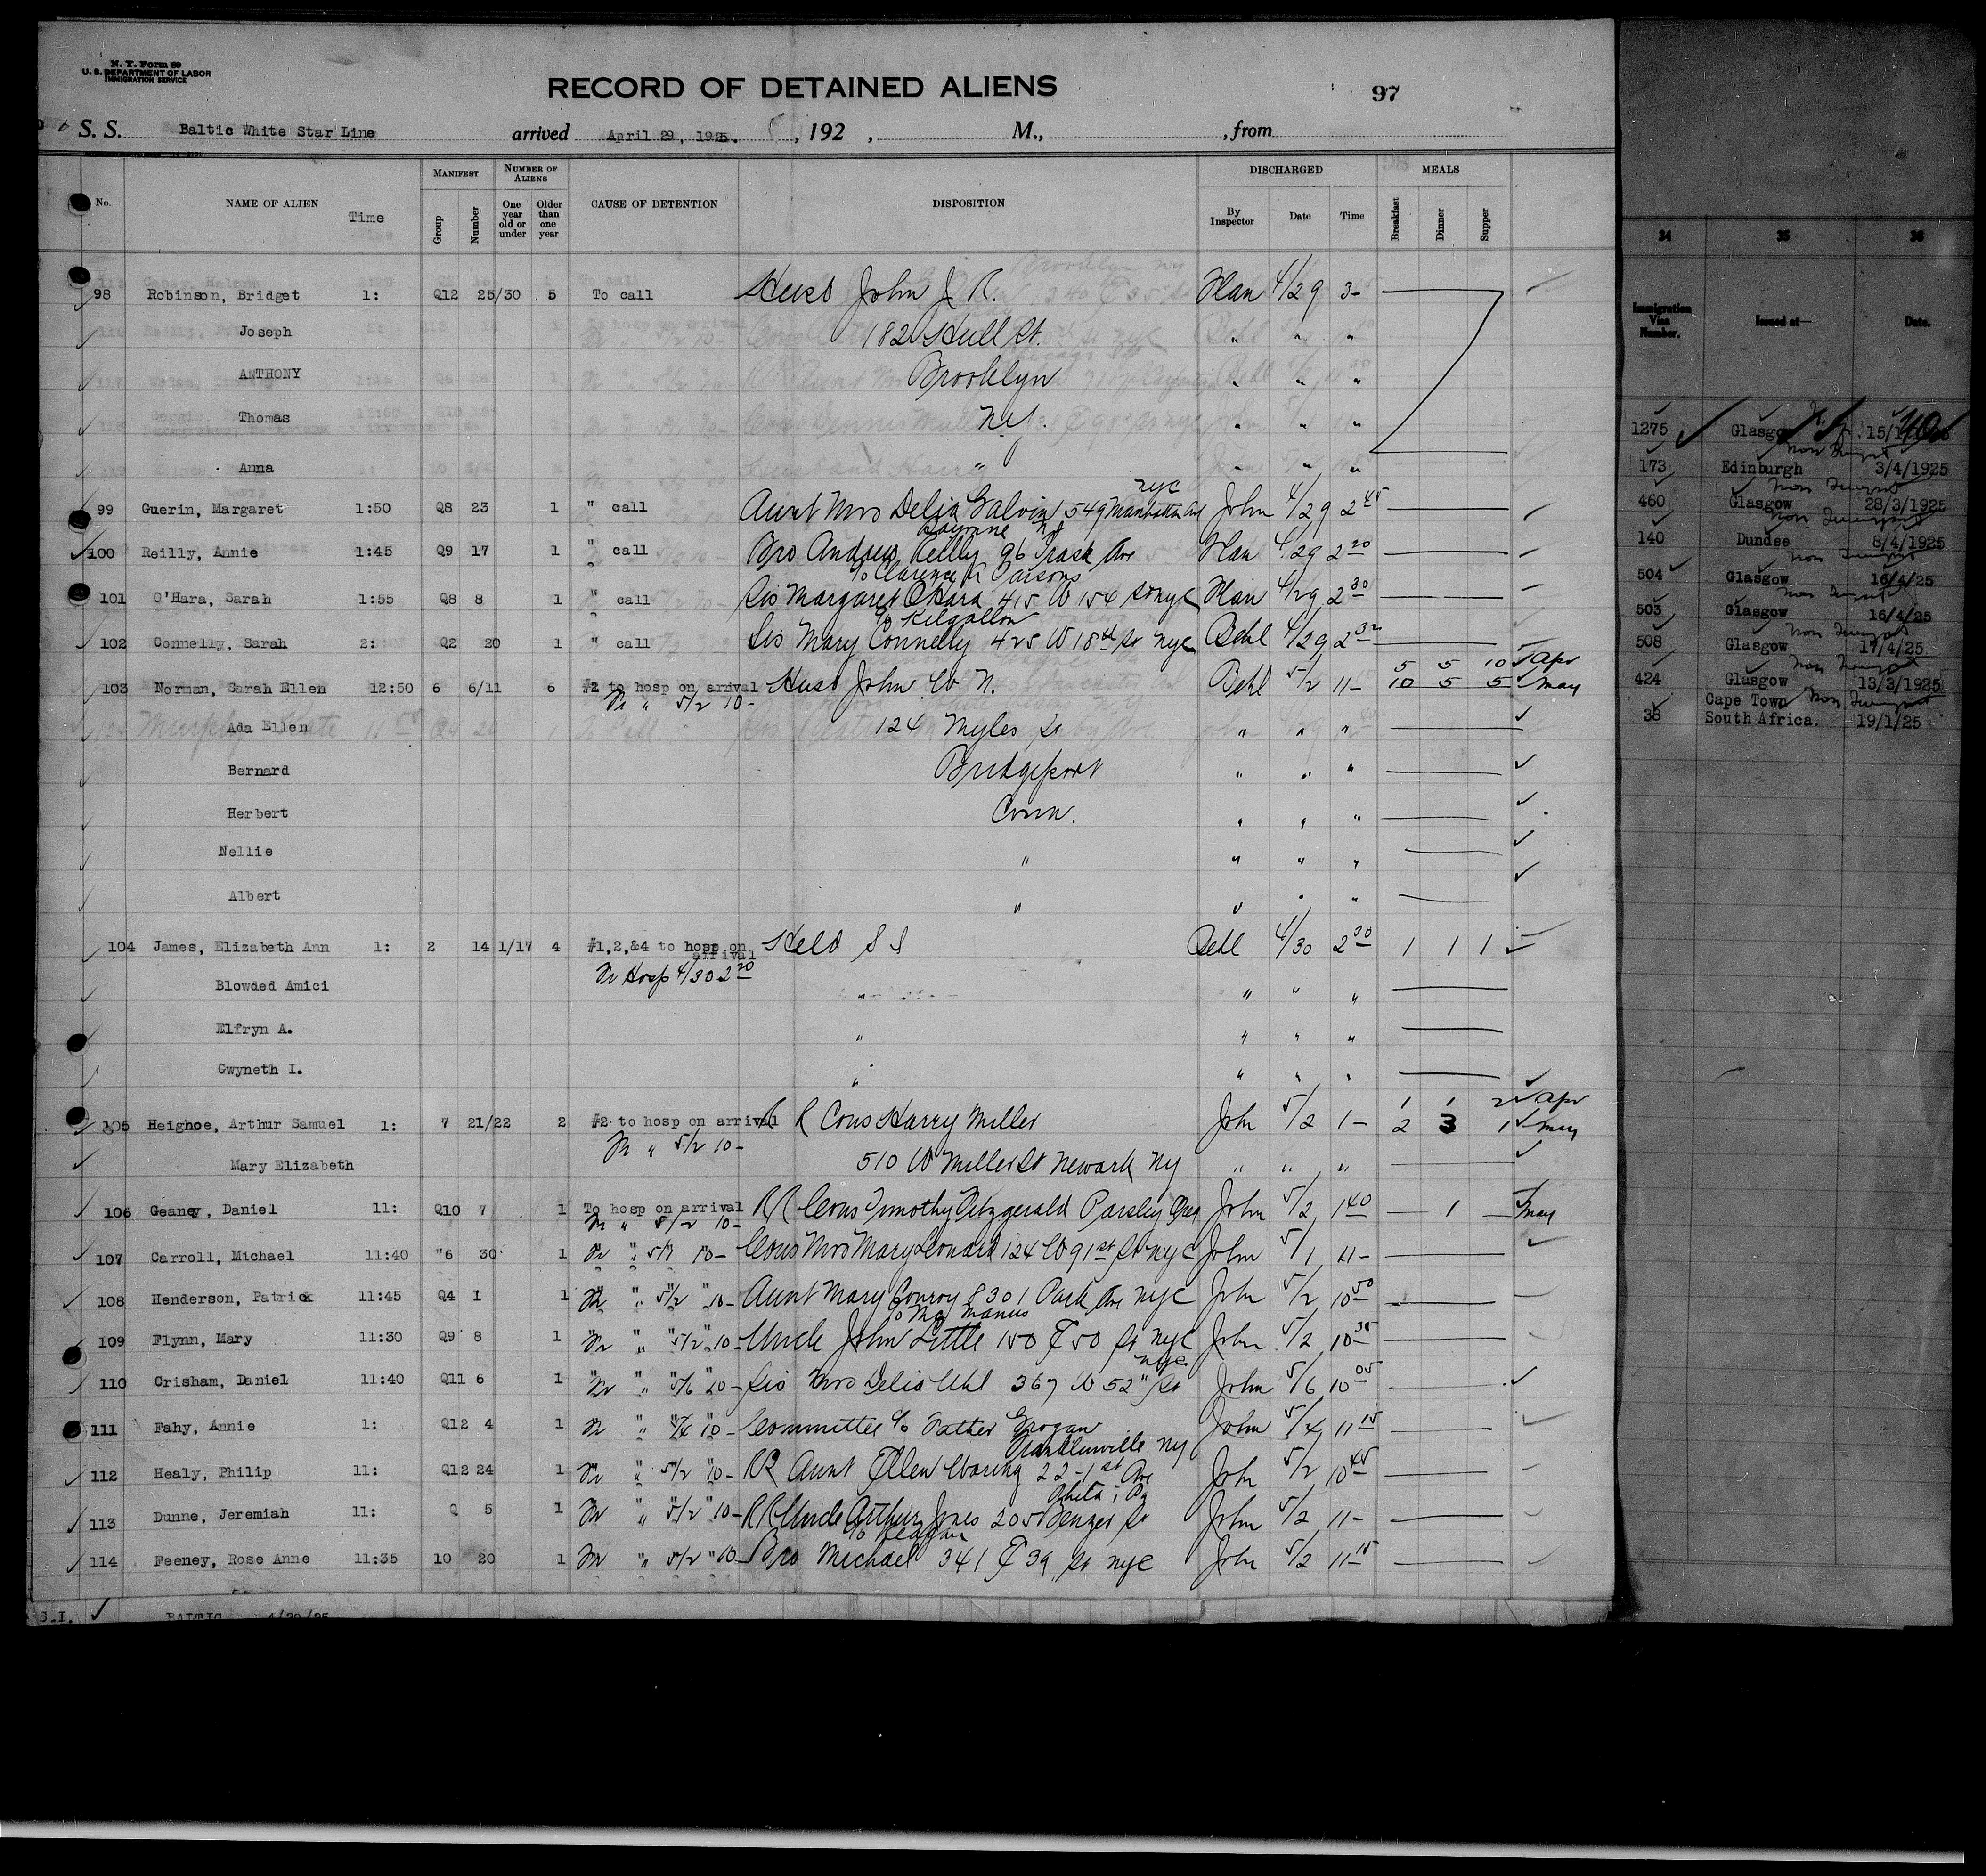 N. Y. Form 89
U. S. DEPARTMENT OF LABOR
IMMIGRATION SERVICE
RECORD OF DETAINED ALIENS
97
S. S. Baltic White Star Line arrived April 29, 1925. , 192 , M., , from
No. NAME OF ALIEN Time MANIFEST Group Number NUMBER OF ALIENS One year old or under Older than one year CAUSE OF DETENTION DISPOSITION DISCHARGED By Inspector Date Time MEALS Breakfast Dinner Supper
98 Robinson, Bridget 1: Q12 25/30 5 To call John J. R. 4/29 3-
Joseph 182 Hull St. " " "
ANTHONY Brooklyn " " "
Thomas N.Y. " " "
Anna " " " "
nyc
99 Guerin, Margaret 1:50 Q8 23 1 " call Aunt Mrs Delia Galvin 549 Manhattan Av John 4/29 2 45
100 Reilly, Annie 1:45 Q9 17 1 " call Bro Andrew Reilly 96 Trask Ave 4/29 2 20
c/o Clarence K Parsons
101 O'Hara, Sarah 1:55 Q8 8 1 " call Sis Margaret O'Hara 415 W 154 St nyc 4/29 2 30
c/o Kilgallon
102 Connelly, Sarah 2: Q2 20 1 " call Sis Mary Connelly 425 W 18th St nyc Behl 4/29 2 32
5 5 10 Apr
103 Norman, Sarah Ellen 12:50 6 6/11 6 #2 to hosp on arrival Husb John W. N. Behl 5/2 11- 10 5 5 May
" 5/2 10-
Ada Ellen 124 Myles St " " "
Bernard Bridgeport " " "
Herbert Conn. " " "
Nellie " " " "
Albert " " " "
104 James, Elizabeth Ann 1: 2 14 1/17 4 #1,2,&4 to hosp on arrival Held S I Behl 4/30 2 30 1 1 1
Hosp 4/30 2 20
Blowded Amici " " " "
Elfryn A. " " " "
Gwyneth I. " " " "
1 1 2 Apr
105 Heighoe, Arthur Samuel 1: 7 21/22 2 #2 to hosp on arrival R R Cous Harry Miller John 5/2 1- 2 3 1 May
" 5/2 10-
Mary Elizabeth 510 W Miller St Newark NY " " "
106 Geaney, Daniel 11: Q10 7 1 To hosp on arrival RR Cous Timothy Fitzgerald Parsley John 5/2 1 40 1 May
" 5/2 10-
107 Carroll, Michael 11:40 "6 30 1 " 10- Cous Mrs Mary Leonard 124 W 91st St nyc John 5/1 11-
108 Henderson, Patrick 11:45 Q4 1 1 " 5/2 " 10- Aunt Mary Conroy 8301 Park Ave nyc John 5/2 10 50
c/o Mc Manus
109 Flynn, Mary 11:30 Q9 8 1 " 5/2 " 10- Uncle John Little 150 E 50 St nyc John 5/2 10 35
nyc
110 Crisham, Daniel 11:40 Q11 6 1 " 5/6 10- Sis Mrs Delia Uhl 367 W 52" St John 5/6 10 05
111 Fahy, Annie 1: Q12 4 1 " 5/4 10- Committee c/o Father Grogan John 5/4 11 15
112 Healy, Philip 11: Q12 24 1 " 5/2 " 10- RR Aunt Ellen Waring 22-1st Ave John 5/2 10 45
Phila, Pa
113 Dunne, Jeremiah 11: Q 5 1 " 5/2 " 10- RR Uncle Arthur Jones 205 St John 5/2 11-
c/o Reagan
114 Feeney, Rose Anne 11:35 10 20 1 " 5/2 " 10- Bro Michael 341 E 39 St nyc John 5/2 11 15
S.I. BALTIC 4/29/25
34 35 36
Immigration Visa Number. Issued at— Date.
1275 Glasgow
173 Edinburgh 3/4/1925
460 Glasgow 28/3/1925
140 Dundee 8/4/1925
504 Glasgow 16/4/25
503 Glasgow 16/4/25
508 Glasgow 17/4/25
424 Glasgow 13/3/1925
38 Cape Town South Africa. 19/1/25